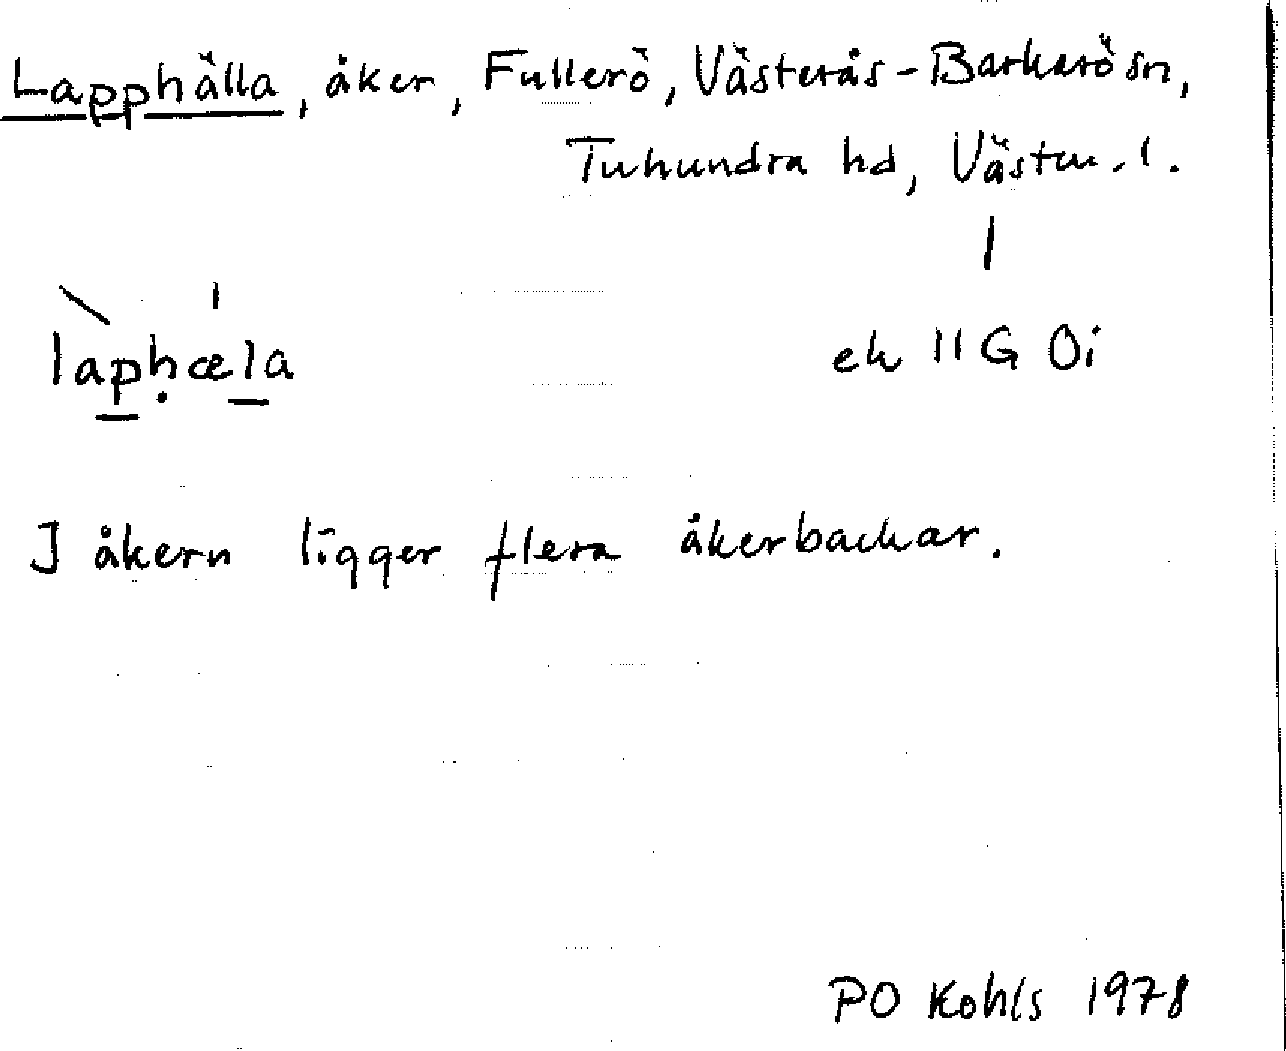 Lapphälla, åker, Fullerö, Västerås-Barkarö sn,
Tuhundra hd, Västm. l.
laphæla
ek 11G 0i
I åkern ligger flera åkerbackar.
PO Kohls 1978